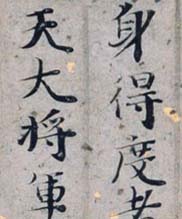 身得度者
天大将軍